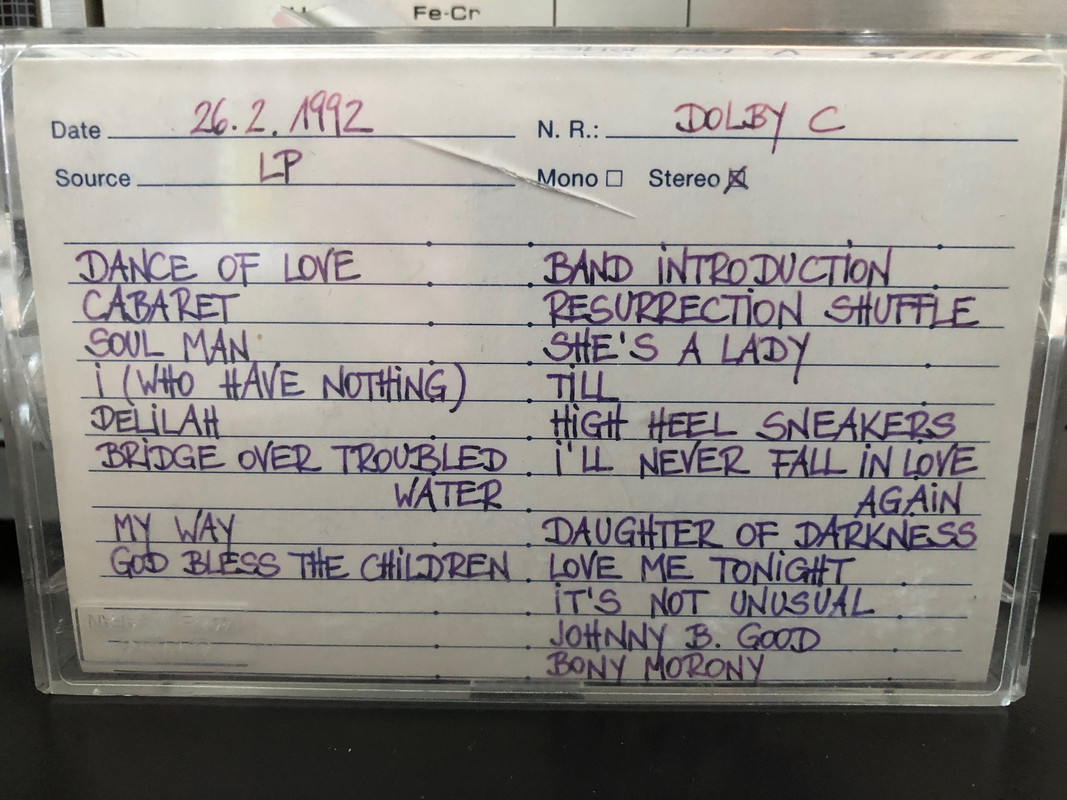 Fe-Cr
Date 26.2.1992 N. R.: DOLBY C
Source LP Mono ☐ Stereo ☒
DANCE OF LOVE
CABARET
SOUL MAN
i (WHO HAVE NOTHiNG)
DELiLAH
BRiDGE OVER TROUBLED
WATER
MY WAY
GOD BLESS THE CHiLDREN
BAND iNTRODUCTiON
RESURRECTiON SHUFFLE
SHE'S A LADY
TiLL
HiGH HEEL SNEAKERS
i'LL NEVER FALL iN LOVE
AGAiN
DAUGHTER OF DARKNESS
LOVE ME TONiGHT
iT'S NOT UNUSUAL
JOHNNY B. GOOD
BONY MORONY